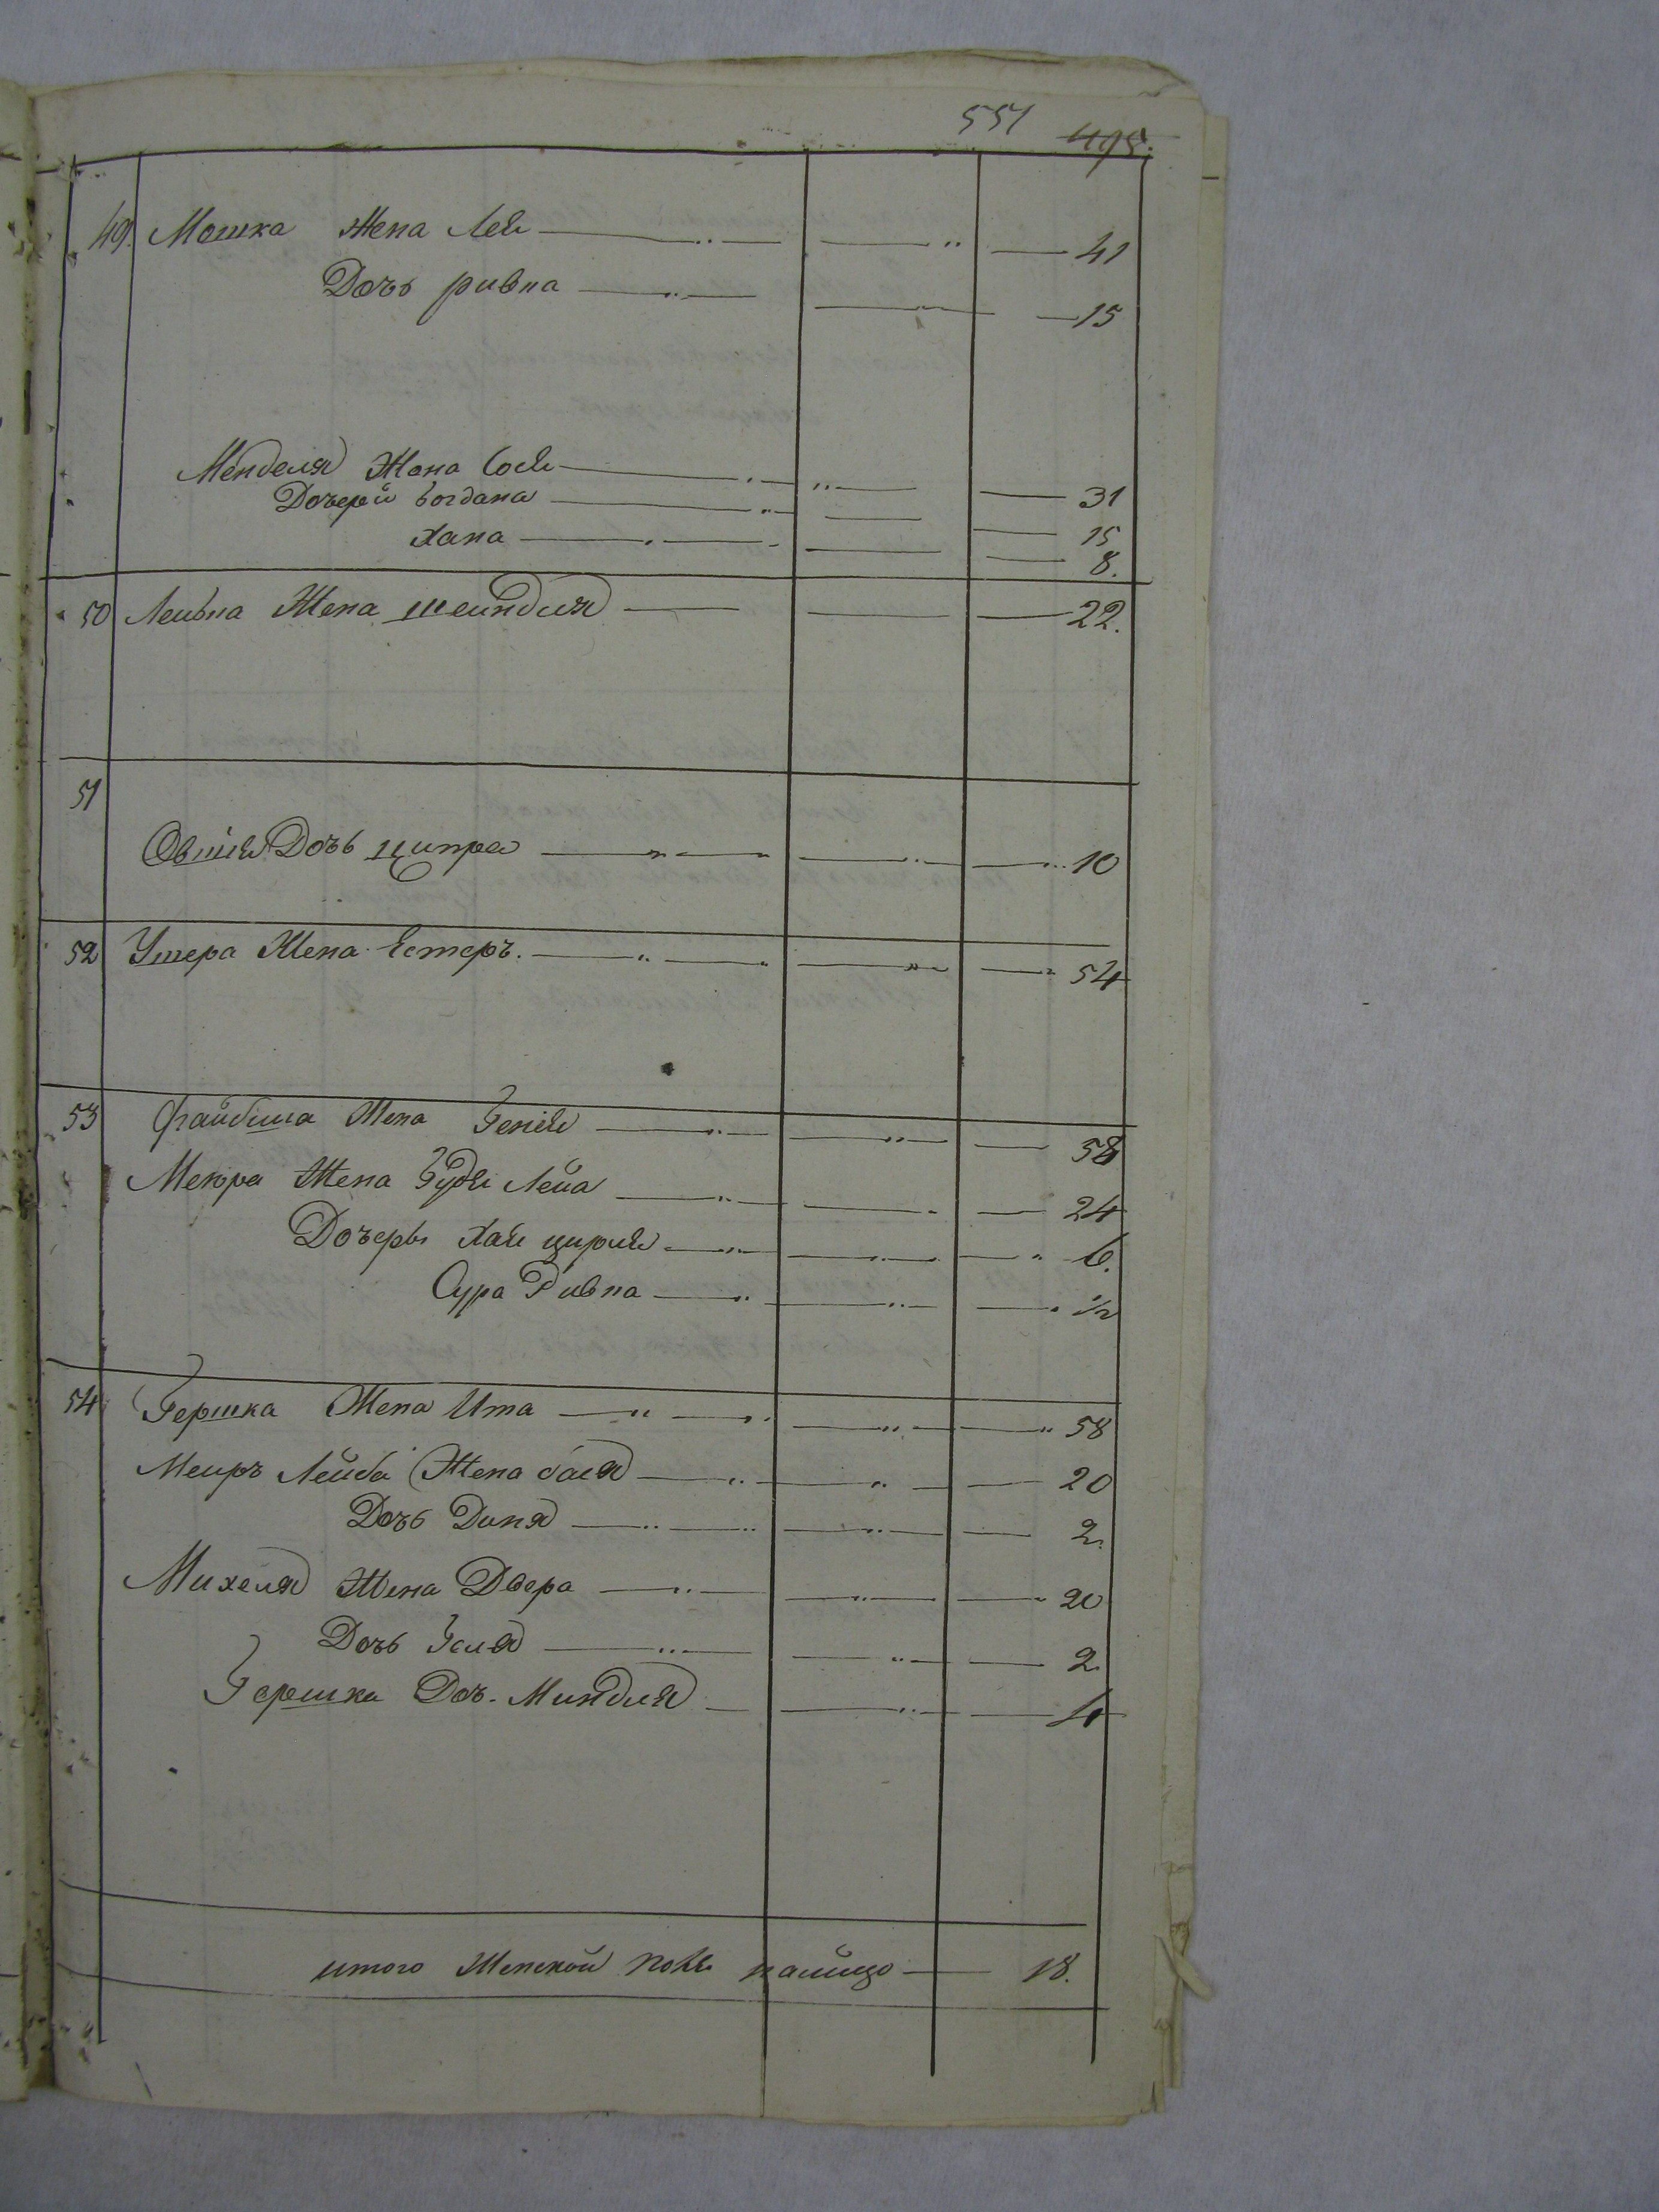 551 495.
49. Мошка Жена Лея 41
Дочь ривка 15
Менделя Жона Сося 31
Дочери богдана 15
хана 8.
50 Лейвика Жена шеиндля 22.
51
Овшія Дочь ципра 10
52 Ушера Жена Естеръ. 54
53 Файбиша Жена Геніся 58
Меюра Жена Гудя Лейа 24
Дочеръ хая цирля 6.
Сура Ривка 1/2
54 Гершка Жена Ита 58
Меиръ Лейба Жена бася 20
Дочь Доня 2.
Михеля Жена Двера 20
Дочь Геля 2.
Гершка Доч. Миндля 4
итого Женской пола налицо 18.